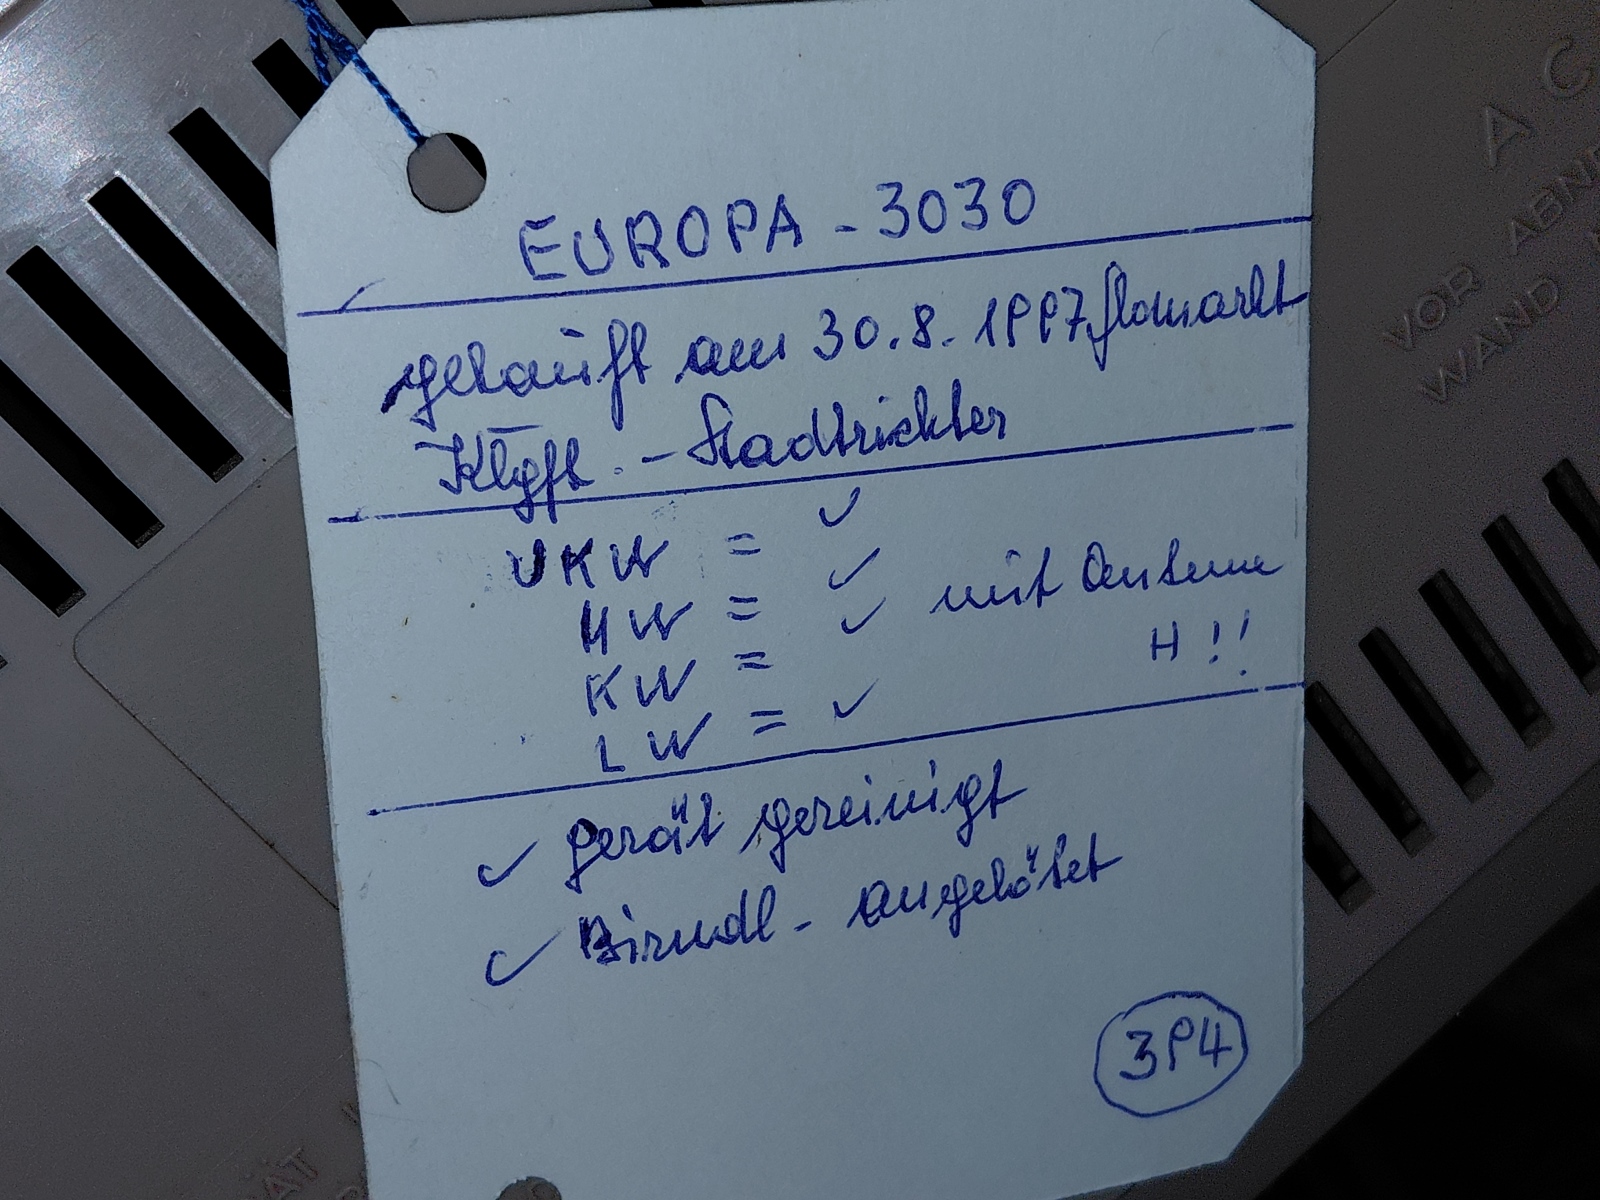 EUROPA - 3030
gekauft am 30.8.1997 flomarkt
Klgft. - Stadtrichter
UKW = ✓
MW = ✓
KW = ✓ mit Antenne
H!!
LW = ✓
✓ gerät gereinigt
✓ Birndl - angelötet
394
AC
VOR ABN
WAND